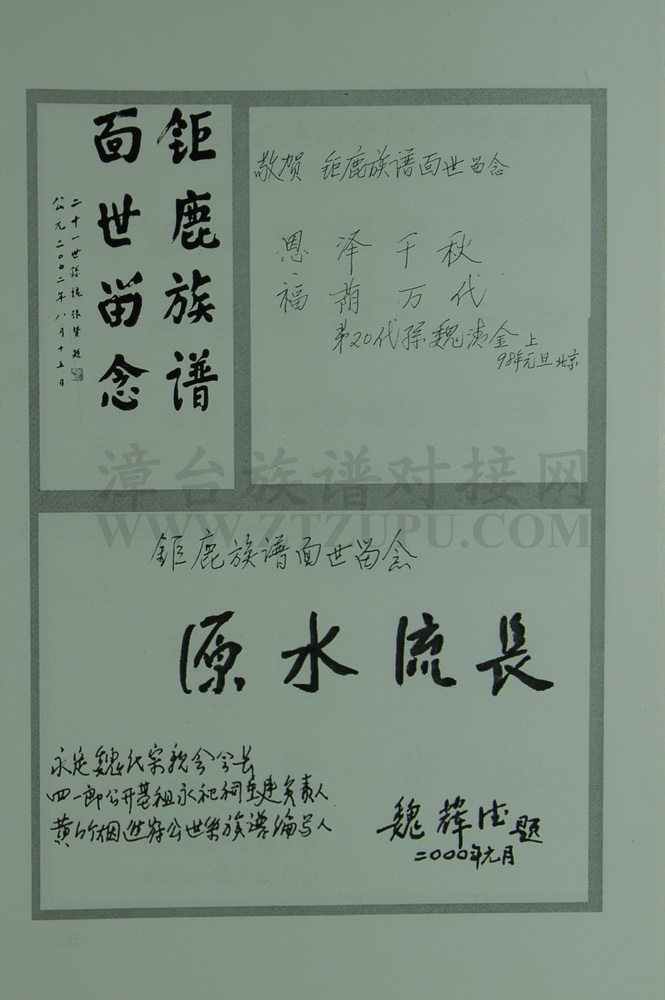 钜鹿族谱
面世畄念
二十一世孫
題
公元二〇〇二年八月十五日
敬贺 钜鹿族谱面世畄念
恩泽千秋
福荫万代
第20代孫魏 金上
98年元旦北京
漳台族谱对接网
WWW.ZTZUPU.COM
钜鹿族谱面世畄念
源水流長
永定魏氏宗親会会长
四一郎公开基祖永祀祠重建负责人
黄竹烟 公世系族谱编写人
魏 題
二000年元月